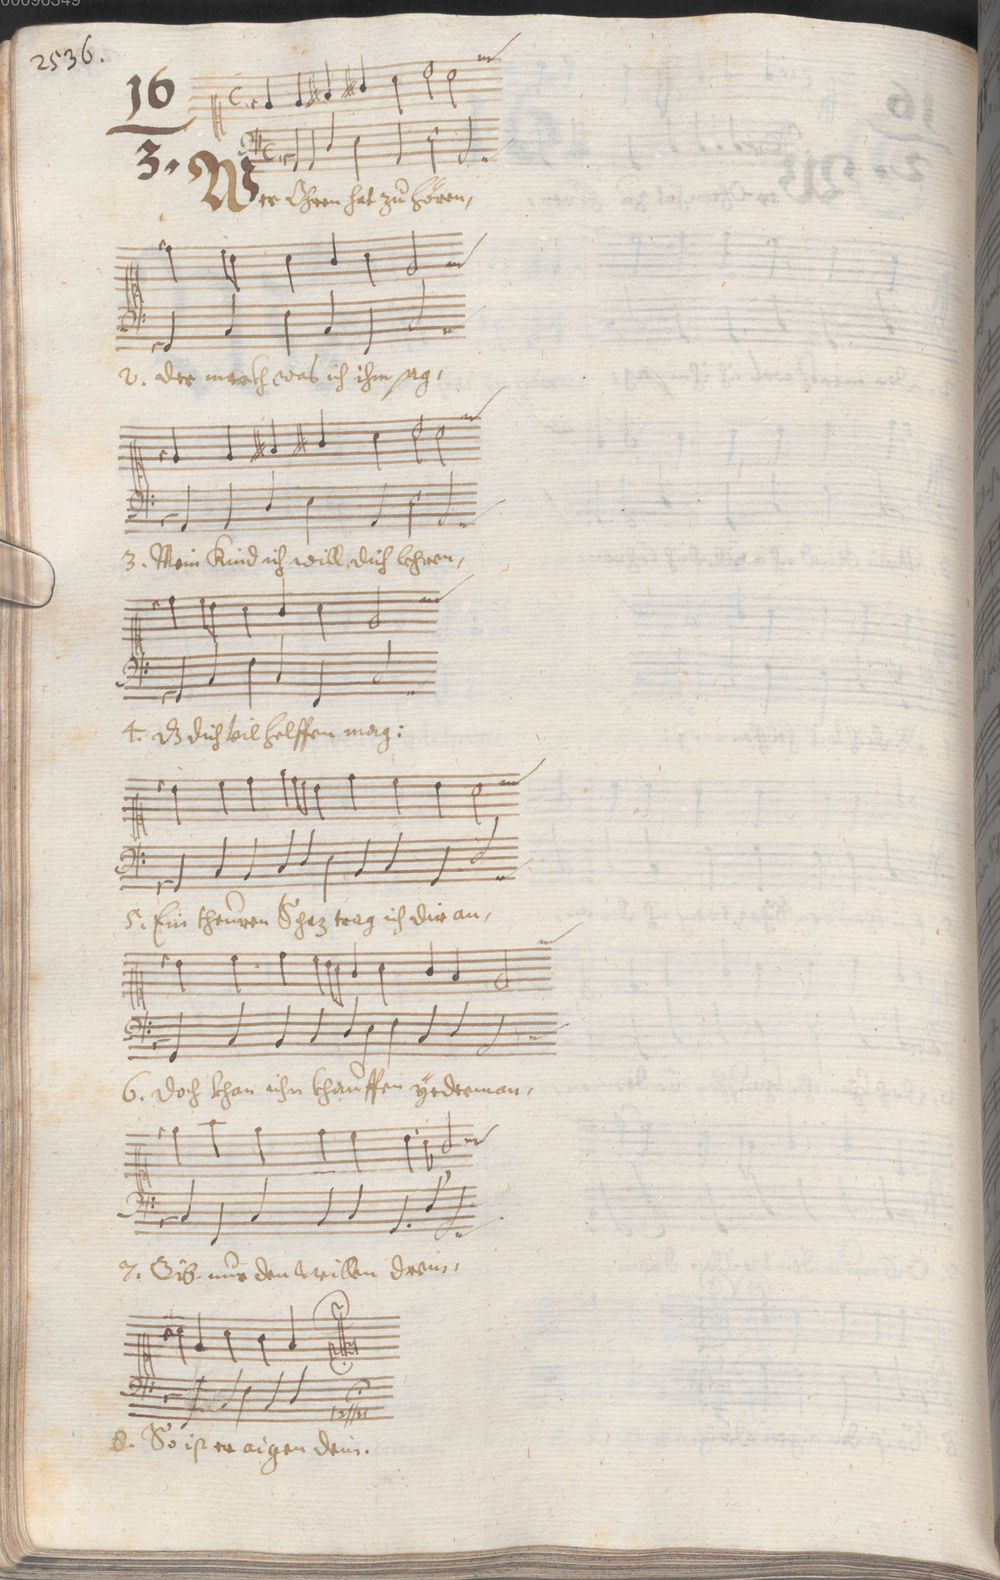 00098349
2536.
16
3. Wer Ohren hat zu hören,
2. der merkh was ich ihm sag,
3. Mein Kind ich will dich lehren,
4. dz dich vil helffen mag:
5. Ein theuren Schaz trag ich dir an,
6. doch khan ihn khauffen yederman,
7. Gib nur den Willen drein,
8. So ist er aigen dein.